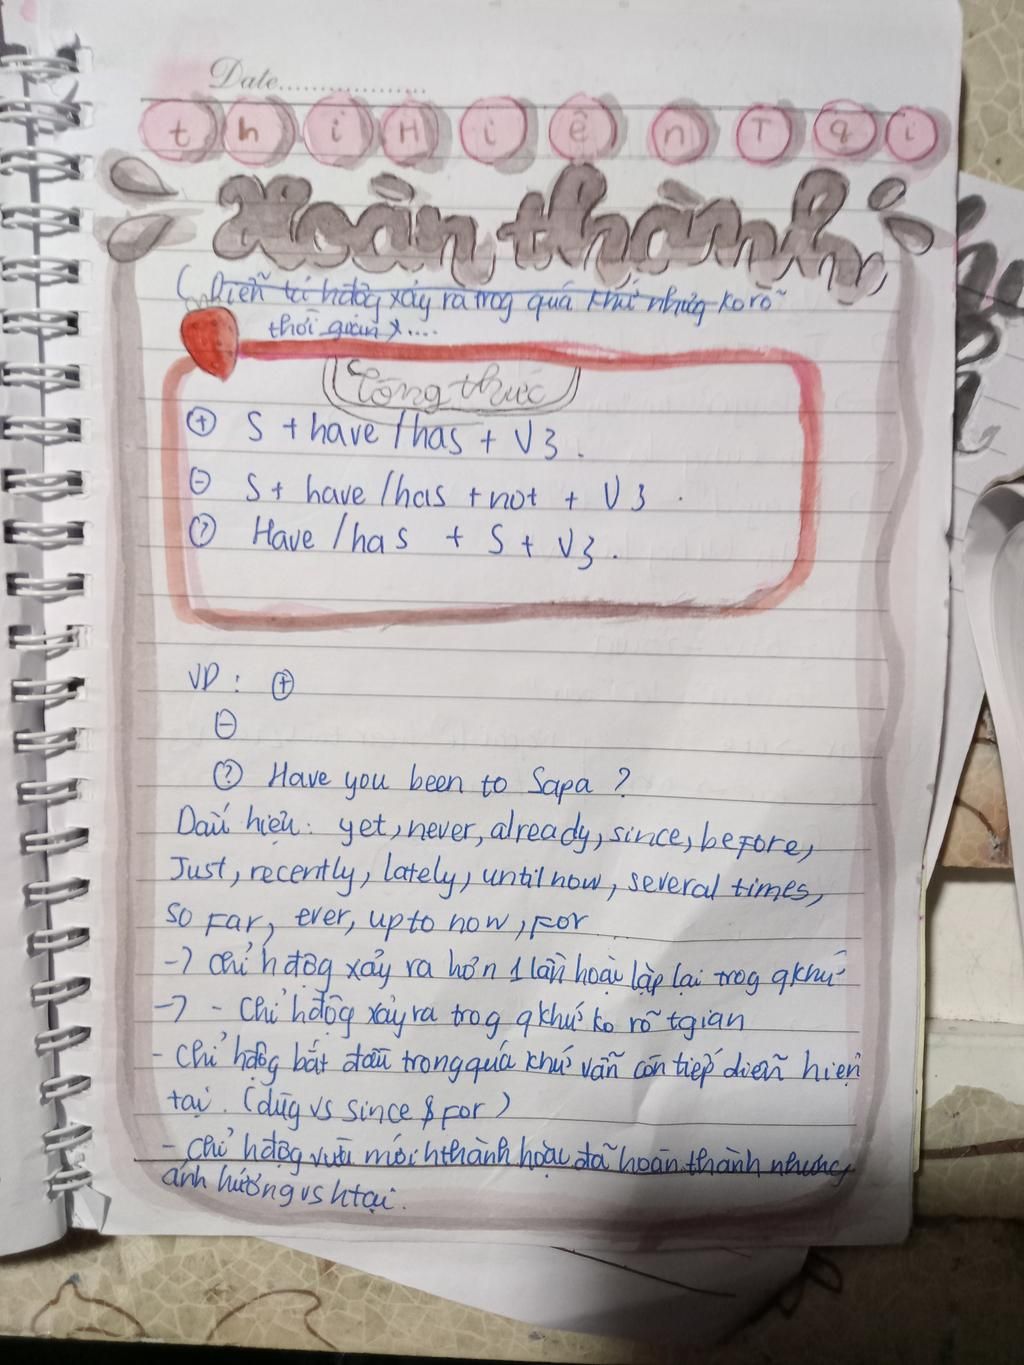 Date..................
thiHiênTqi
Hoàn thành
(Diễn tả hđộg xảy ra trog quá khứ nhưng ko rõ
thời gian)....
Công thức
(+) S + have / has + V3.
(-) S + have / has + not + V3.
(?) Have / has + S + V3.
VD: (+)
(-)
(?) Have you been to Sapa?
Dấu hiệu: yet, never, already, since, before,
Just, recently, lately, until now, several times,
so far, ever, up to now, for
-> chỉ hđộg xảy ra hơn 1 lần hoặc lặp lại trog qkhứ
-> - chỉ hđộg xảy ra trog qkhứ ko rõ tgian
- chỉ hđộg bắt đầu trong quá khứ vẫn còn tiếp diễn hiện
tại. (dùg vs since & for)
- chỉ hđộg vừa mới hthành hoặc đã hoàn thành nhưng
ảnh hưởng vs htại.